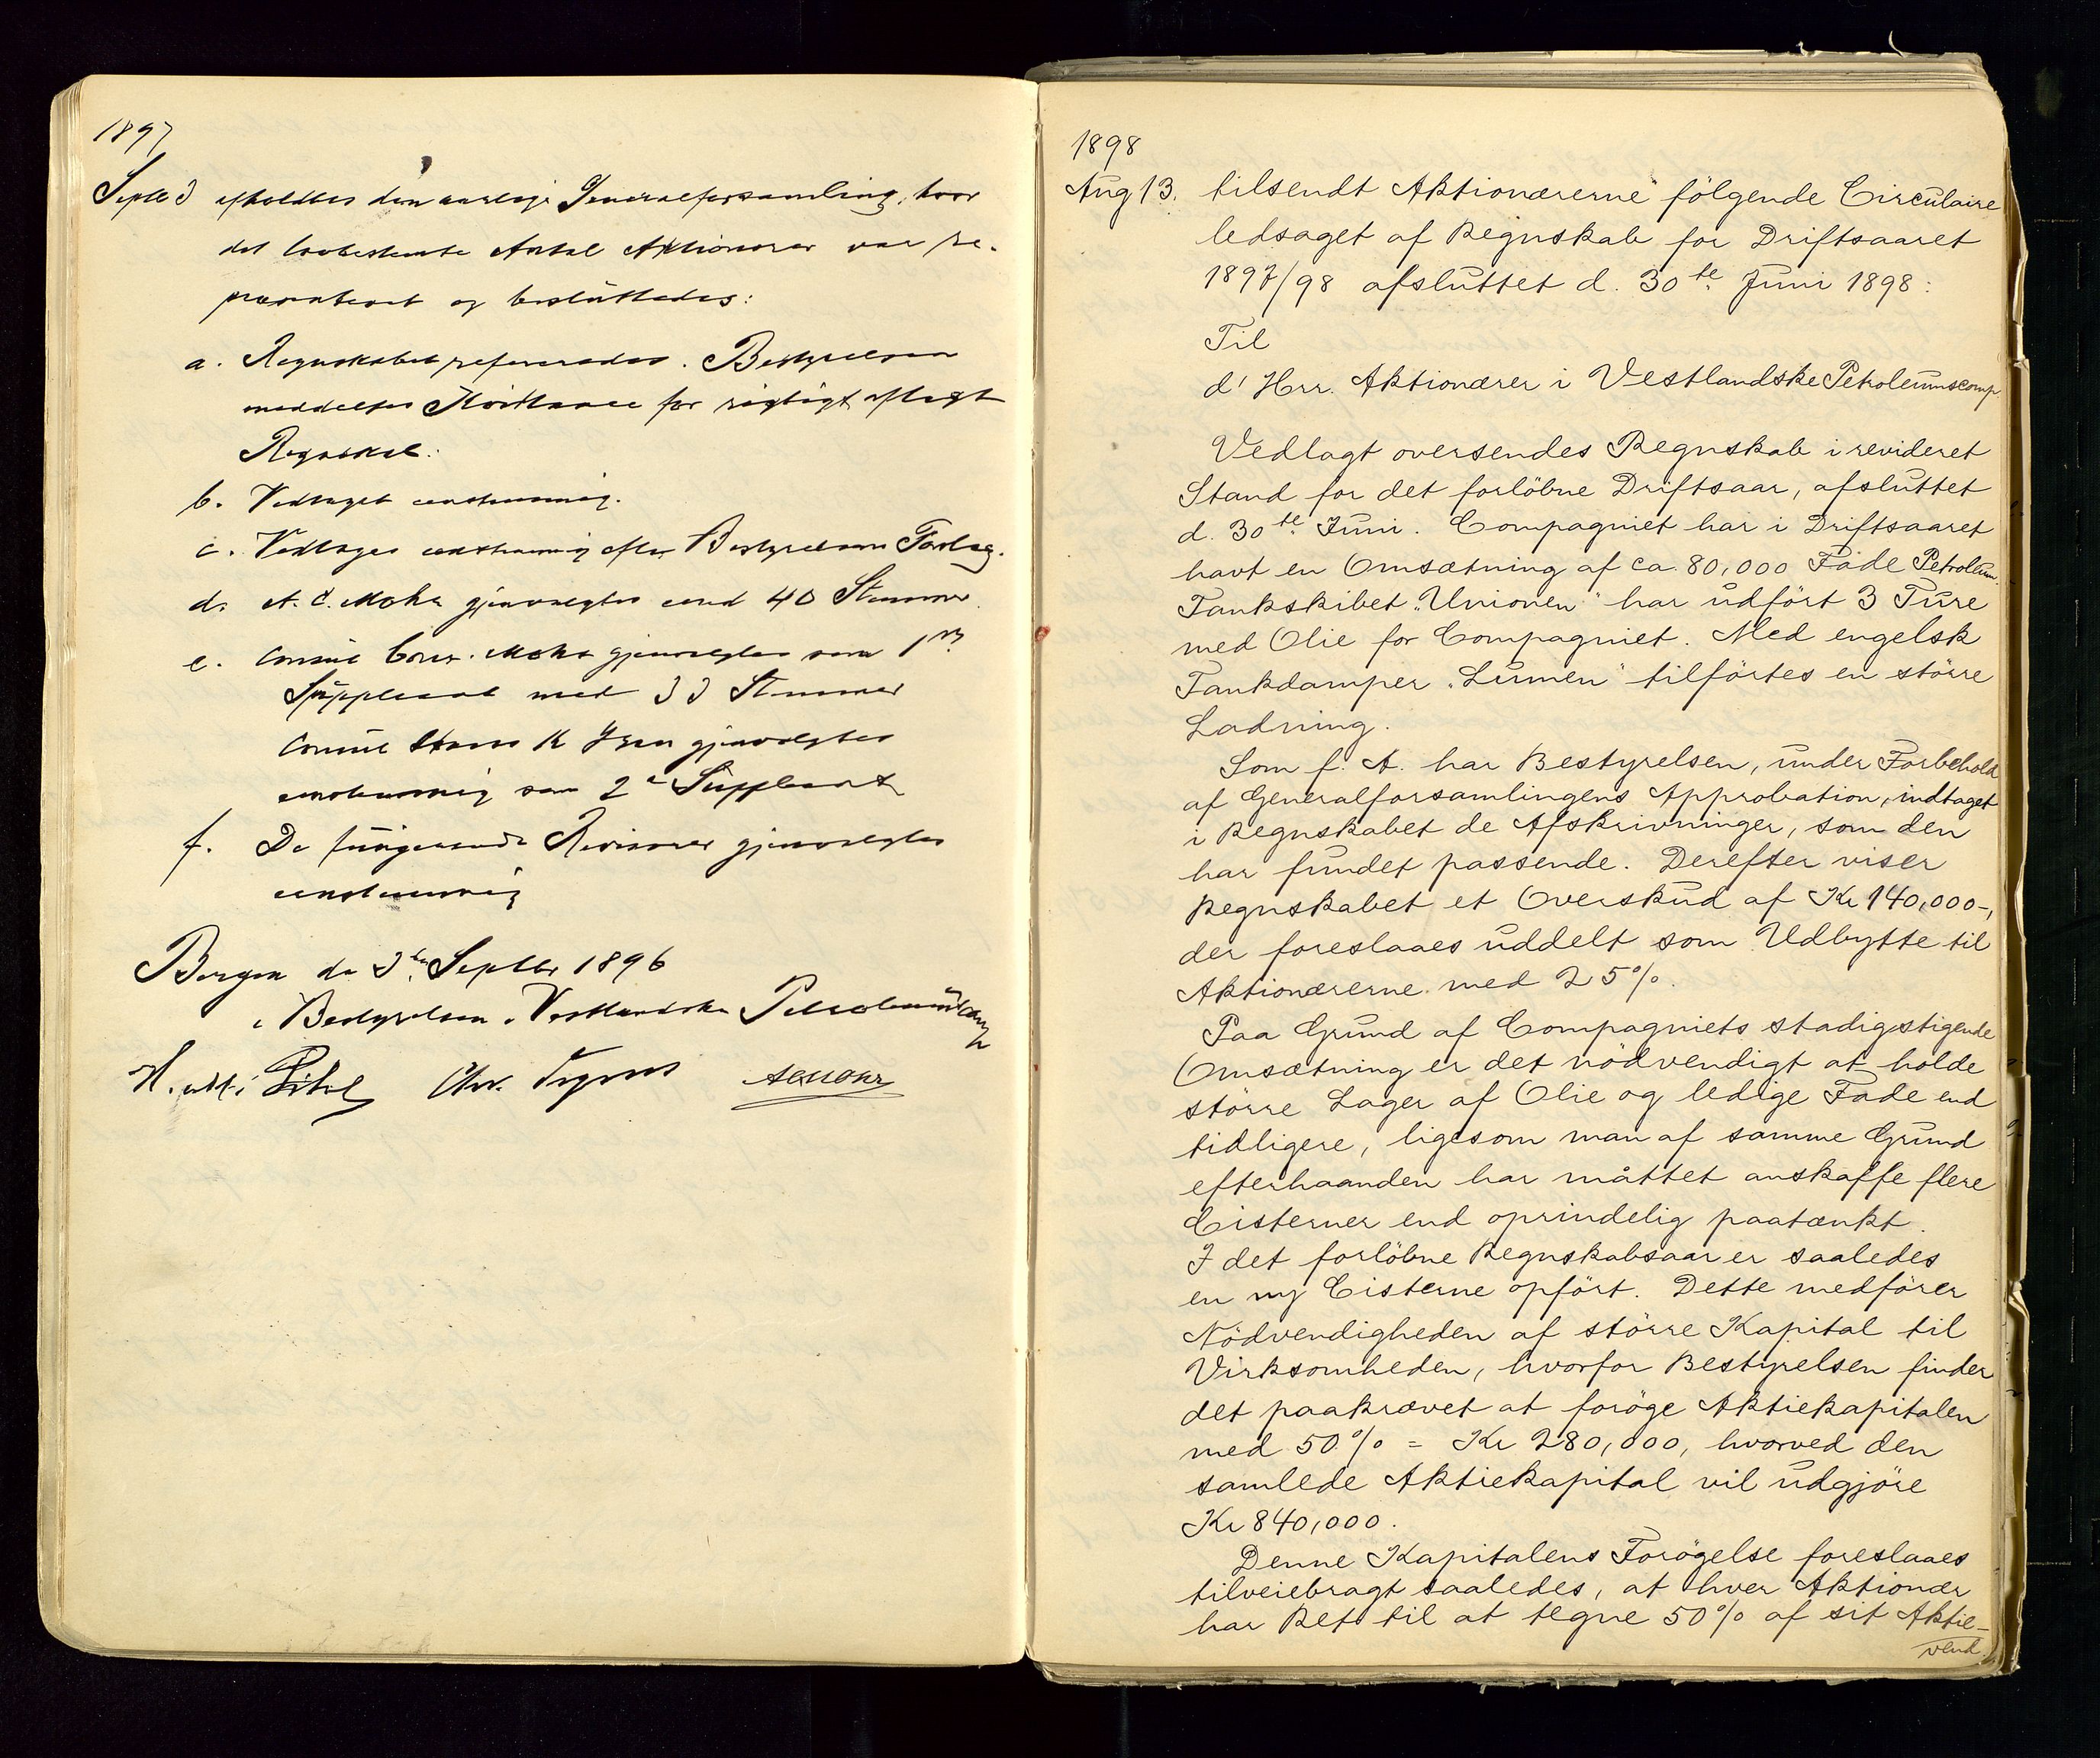 1897
Septb 3 afholdtes den aarlige Generalforsamling, hvor
det lovbestemte Antal Aktionærer var re-
præsenteret og besluttedes:
a. Regnskabet refereredes. Bestyrelsen
meddeltes Kvittance for rigtigt aflagt
Regnskab.
b. Vedtaget eenstemmig.
c. Vedtages eenstemmig efter Bestyrelsens Forslag.
d. A. C. Mohr gjenvalgtes med 40 Stemmer.
e. Consul Conr. Mohr gjenvalgtes som 1ste
Suppleant med 33 Stemmer
Consul gjenvalgtes
eenstemmig som 2den Suppleant
f. De fungerende Revisorer gjenvalgtes
eenstemmig
Bergen de 3die Septbr 1896
i Bestyrelsen i Vestlandske Petroleumscomp
Chr. ACMohr
1898
Aug 13. tilsendt Aktionærerne følgende Circulaire
ledsaget af Regnskab for Driftsaaret
1897/98 afsluttet d. 30te Juni 1898:
Til
d' Hrr. Aktionærer i Vestlandske Petroleumscomp.
Vedlagt oversendes Regnskab i revideret
Stand for det forløbne Driftsaar, afsluttet
d. 30te Juni. Compagniet har i Driftsaaret
havt en Omsætning af ca. 80,000 Fade Petroleum.
Tankskibet "Unionen" har udført 3 Ture
med Olie for Compagniet. Med engelsk
Tankdamper "Lumen" tilførtes en större
Ladning.
Som f. A. har Bestyrelsen, under Forbehold
af Generalforsamlingens Approbation, indtaget
i Regnskabet de Afskrivninger, som den
har fundet passende. Derefter viser
Regnskabet et Overskud af Kr 140,000-,
der foreslaaes uddelt som Udbytte til
Aktionærerne med 25%.
Paa Grund af Compagniets stadig stigende
Omsætning er det nödvendigt at holde
större Lager af Olie og ledige Fade end
tidligere, ligesom man af samme Grund
efterhaanden har måttet anskaffe flere
Cisterner end oprindelig paatænkt.
I det forlöbne Regnskabsaar er saaledes
en ny Cisterne opfört. Dette medförer
Nödvendigheden af större Kapital til
Virksomheden, hvorfor Bestyrelsen finder
det paakrævet at foröge Aktiekapitalen
med 50% = Kr 280,000, hvorved den
samlede Aktiekapital vil udgjöre
Kr 840,000.
Denne Kapitalens Forögelse foreslaaes
tilveiebragt saaledes, at hver Aktionær
har Ret til at tegne 50% af sit Aktie-
vend.